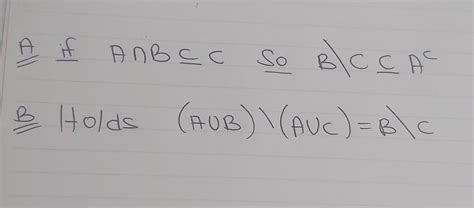 A if A∩B⊆C So B\C⊆Aᶜ
B Holds (A∪B)\(A∪C)=B\C